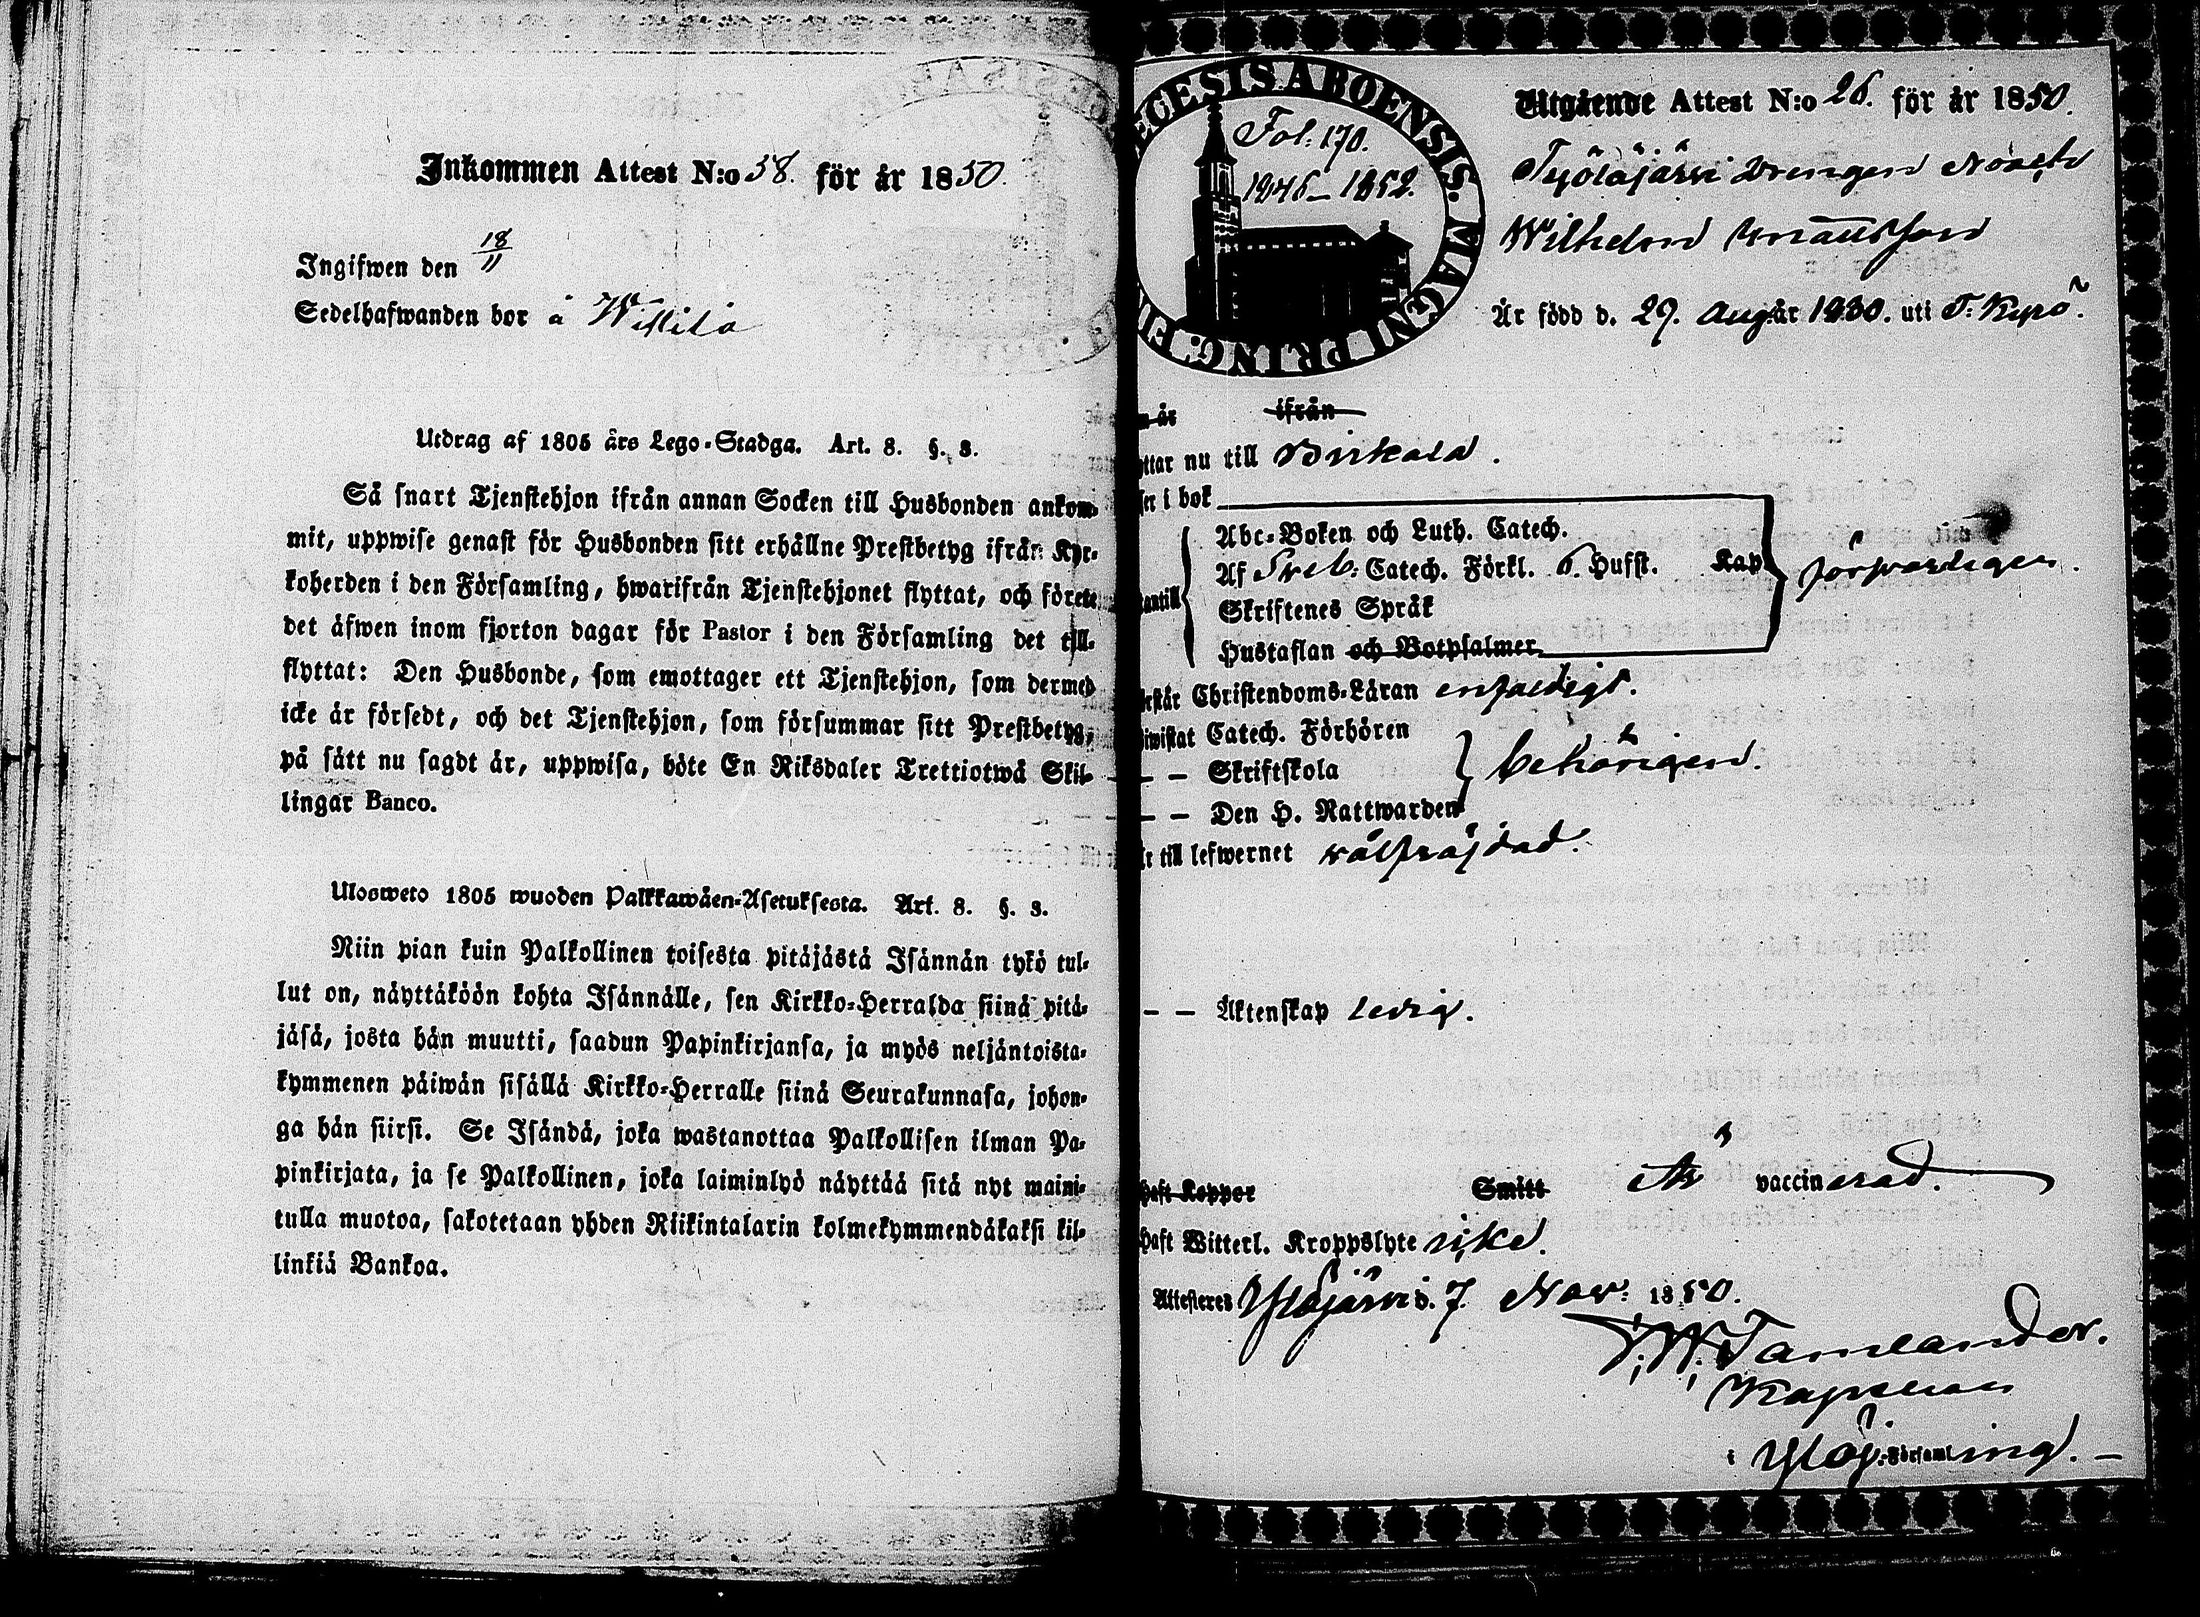 Inkommen Attest N:o 58. för år 1850.
Ingifwen den 18/11
Sedelhafwanden bor å Willilä
Utdrag af 1805 års Lego-Stadga. Art. 8. §. 3.
Så snart Tjenstehjon ifrån annan Socken till Husbonden ankom-
mit, uppwise genast för Husbonden sitt erhållne Prestbetyg ifrån Kyr-
koherden i den Församling, hwarifrån Tjenstehjonet flyttat, och förete
det äfwen inom fjorton dagar för Pastor i den Församling det till-
flyttat: Den Husbonde, som emottager ett Tjenstehjon, som dermed
icke är försedt, och det Tjenstehjon, som försummar sitt Prestbetyg,
på sätt nu sagdt är, uppwisa, böte En Riksdaler Trettiotwå Skil-
lingar Banco.
Ulosweto 1805 wuoden Palkkawäen-Asetuksesta. Art. 8. §. 3.
Niin pian kuin Palkollinen toisesta pitäjästä Isännän tykö tul-
lut on, näyttäköön kohta Isännälle, sen Kirkko-Herralda siinä pitä-
jäsä, josta hän muutti, saadun Papinkirjansa, ja myös neljäntoista-
kymmenen päiwän sisällä Kirkko-Herralle siinä Seurakunnasa, johon-
ga hän siirsi. Se Isändä, joka wastanottaa Palkollisen ilman Pa-
pinkirjata, ja se Palkollinen, joka laiminlyö näyttää sitä nyt maini-
tulla muotoa, sakotetaan yhden Riikintalarin kolmekymmendäkaksi kil-
linkiä Bankoa.
ECESIS ABOENSIS. MAGNI PRINC: FI
Fol: 170.
1846–1852.
Utgående Attest N:o 26. för år 1850.
Drengen
Wilhelm
Är född d. 29. Aug. år 1830. uti T: Kyrö.
n år ifrån
ttar nu till Birkala.
ser i bok
Abc-Boken och Luth. Catech.
Af Sveb: Catech. Förkl. 6. Hufst. Kap
antill
Skriftenes Språk
Hustaflan och Botpsalmer
försvarligen.
rstår Christendoms-Läran enfaldigt.
iwistat Catech. Förhören
— — Skriftskola
— — Den H. Nattwarden
behörigen.
r till lefwernet välfräjdad.
— — Äktenskap ledig.
haft Koppor Smitt Är vaccinerad.
haft Witterl. Kroppslyte icke.
Attesteres Ylöjärvi d. 7. Nov: 1850.
F. W. Tamlander.
Kapellan
i Ylöj. Församling.